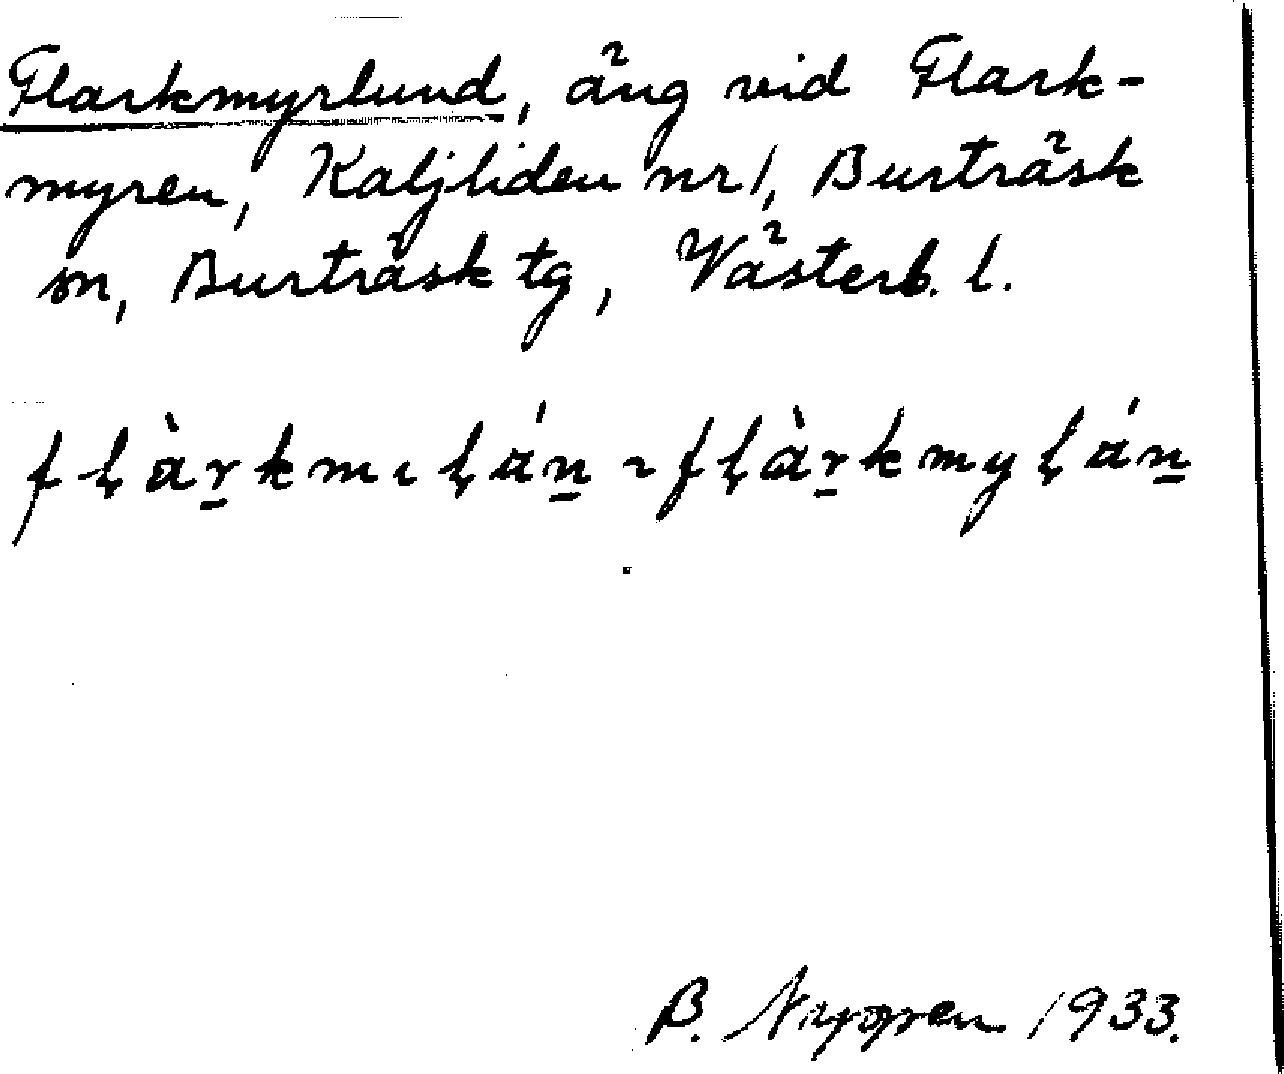 Flarkmyrlund, äng vid Flark-
myren, Kaljliden nr 1, Burträsk
sn, Burträsk tg, Västerb. l.
fḷàr̠kmıḷán̠ ~ fḷàr̠kmyḷán̠
B. Nygren 1933.